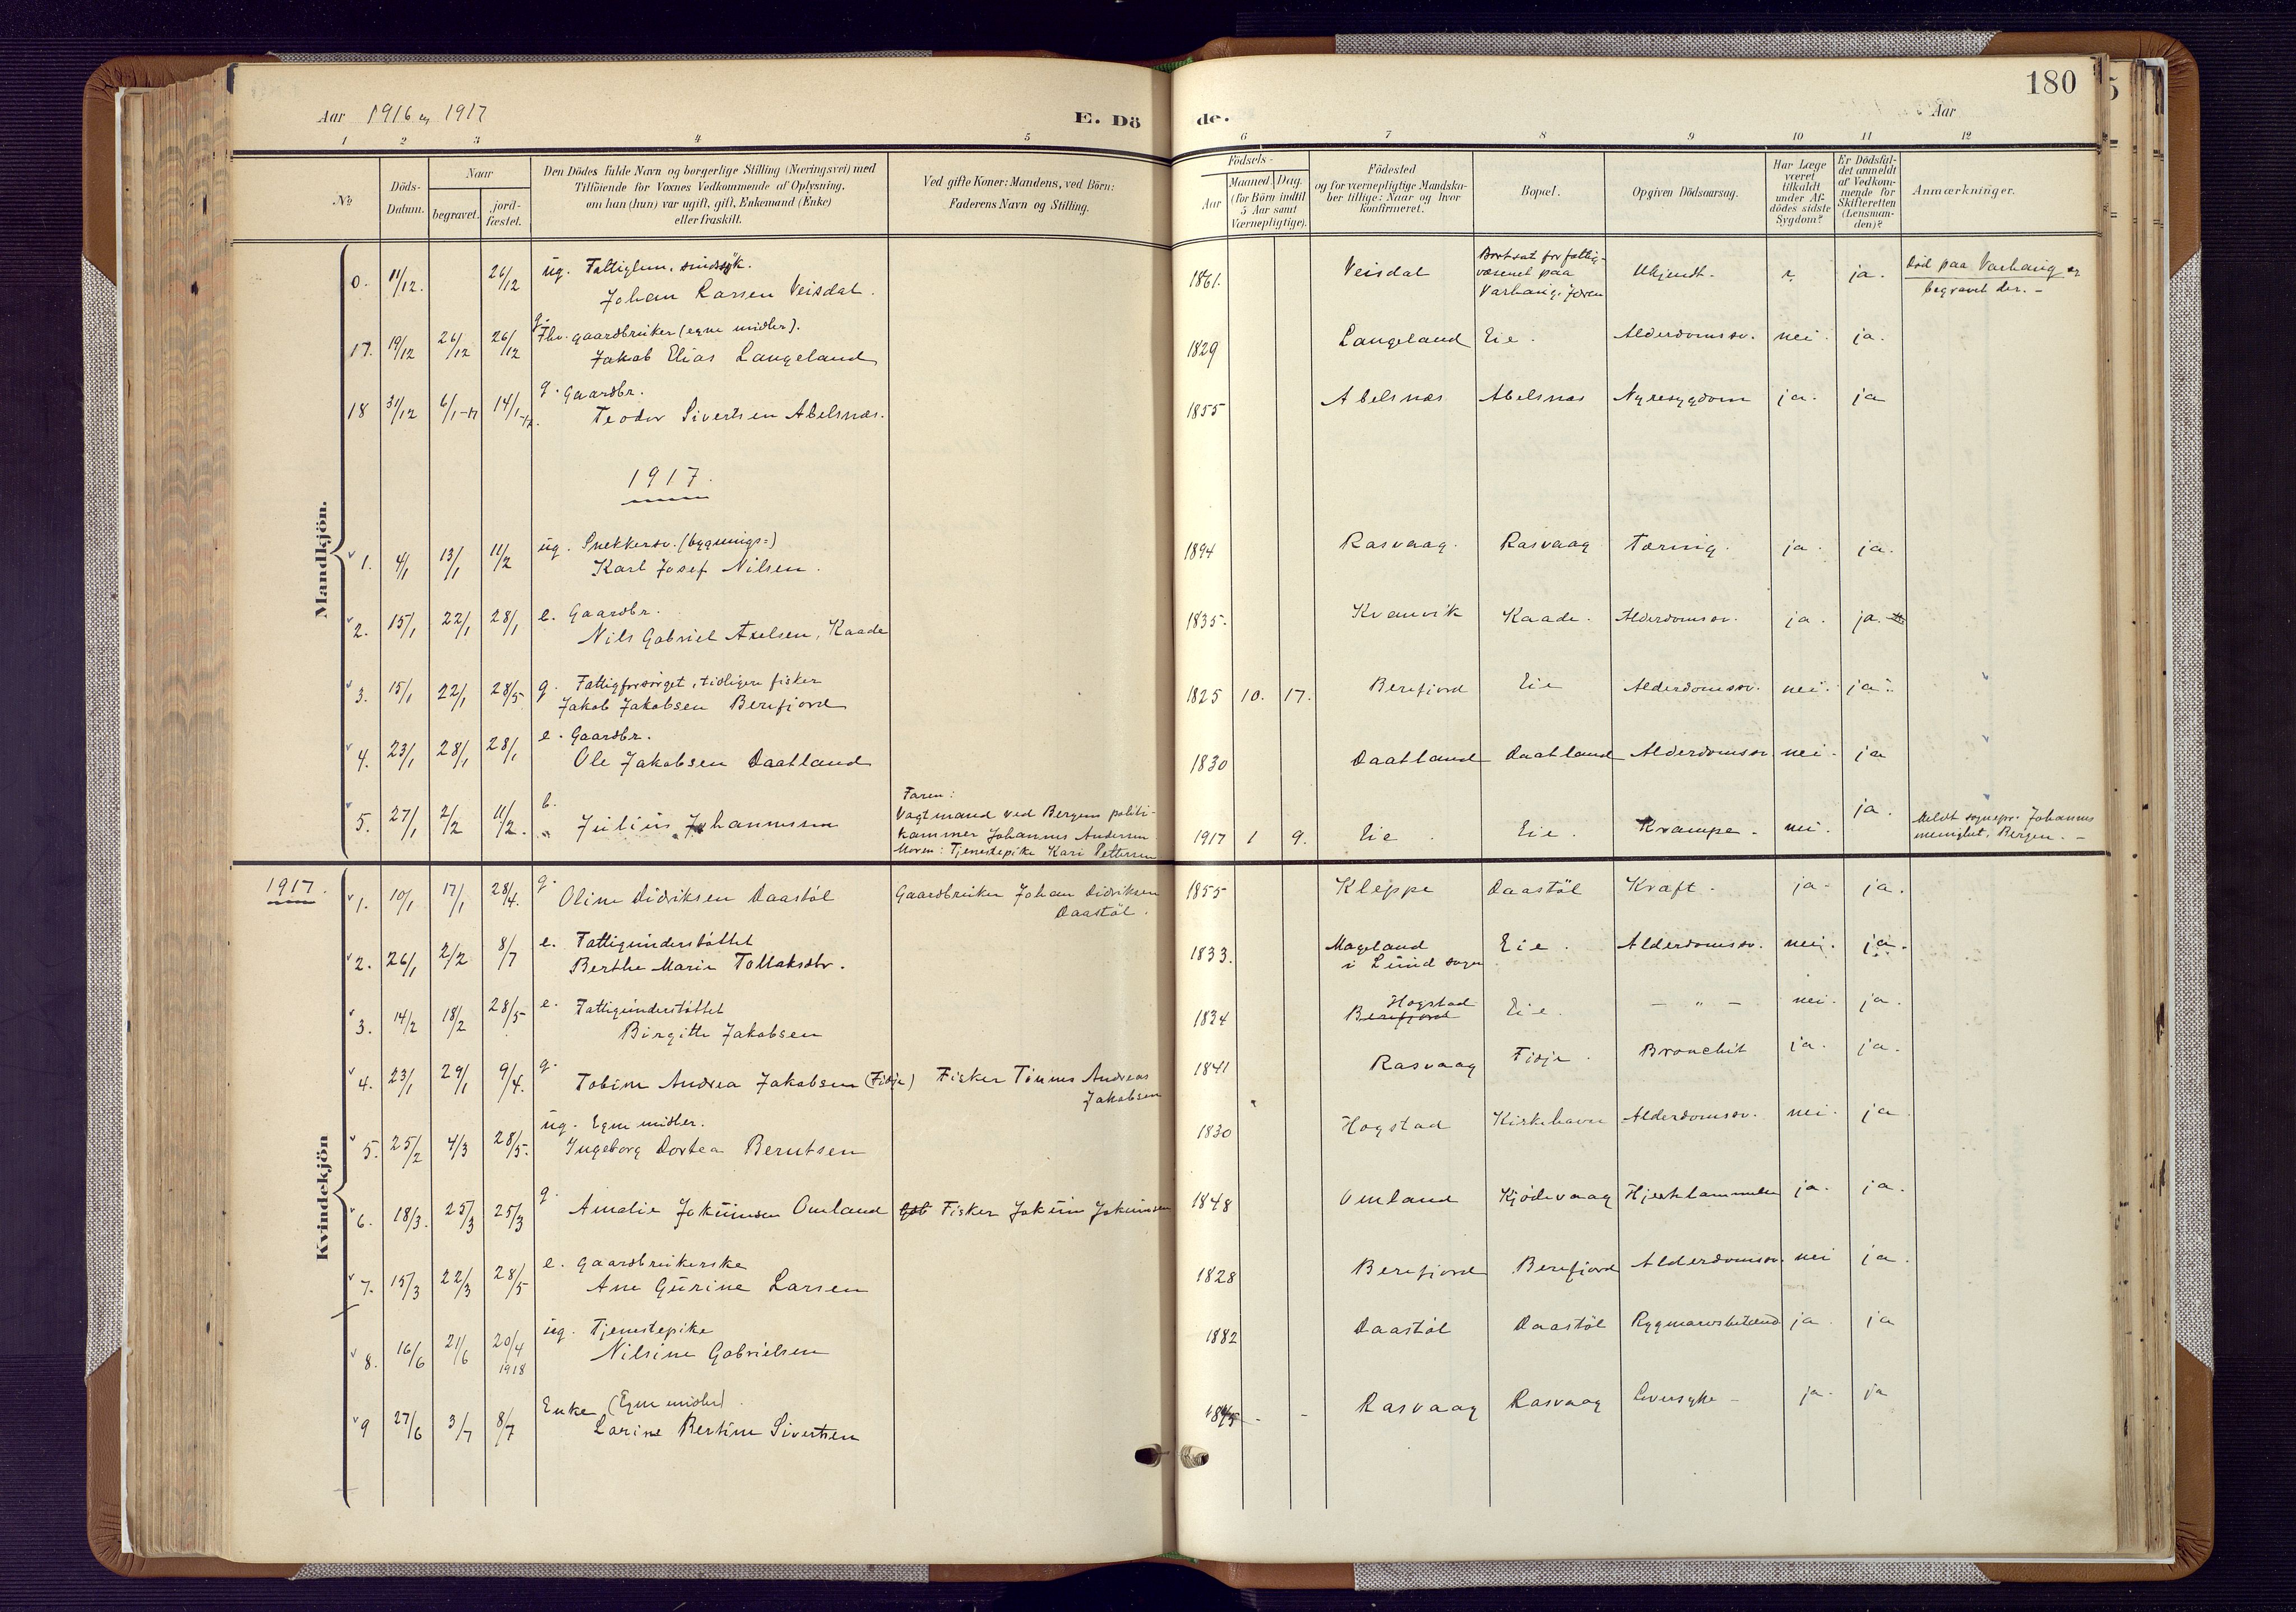 Aar 1916 og 1917
E. Dö
de.
Aar
180
1 2 3 4 5 6 7 8 9 10 11 12
№
Döds-
Datum.
Naar
begravet.
jord-
fæstet.
Den Dödes fulde Navn og borgerlige Stilling (Næringsvei) med
Tilföiende for Voxnes Vedkommende af Oplysning,
om han (hun) var ugift, gift, Enkemand (Enke)
eller fraskilt.
Ved gifte Koner: Mandens, ved Börn:
Faderens Navn og Stilling.
Födsels-
Aar
Maaned. Dag.
(for Börn indtil
5 Aar samt
Værnepligtige).
Födested
og for værnepligtige Mandska-
ber tillige: Naar og hvor
konfirmeret.
Bopæl.
Opgiven Dödsaarsag.
Har Læge
været
tilkaldt
under Af-
dödes sidste
Sygdom?
Er Dödsfal-
det anmeldt
af Vedkom-
mende for
Skifteretten
(Lensman-
den)?
Anmærkninger.
Mandkjön.
0. 11/12. 26/12 ug. Fattiglem, sindssyk.
Johan Larsen Veisdal.
1861. Veisdal
Bortsat for fattig-
væsenet paa
Varhaug, Jæren
Ukjendt. ? ja.
Död paa Varhaug og
begravet der. -
17. 19/12 26/12 26/12 g. Fhv. gaardbruker (egne midler).
Jakob Elias Langeland
1829 Langeland Eie. Alderdomssv. nei. ja.
18 31/12 6/1-17 14/1-17. g. Gaardbr.
Teodor Sivertsen Abelsnæs.
1855 Abelsnæs Abelsnæs Nyresygdom ja. ja
1917.
1. 4/1 13/1 11/2 ug. Snekkersv. (bygnings=)
Karl Josef Nilsen.
1894 Rasvaag. Rasvaag Tæring. ja. ja.
2. 15/1 22/1 28/1 e. Gaardbr.
Nils Gabriel Axelsen, Kaade
1835. Kvanvik Kaade. Alderdomssv. ja. ja.
3. 15/1 22/1 28/5 g. Fattigforsörget, tidligere fisker
Jakob Jakobsen Berefjord
1825 10. 17. Berefjord Eie Alderdomssv. nei. ja.
4. 23/1 28/1 28/1 e. Gaardbr.
Ole Jakobsen Daatland
1830 Daatland Daatland Alderdomssv nei. ja
5. 27/1 2/2 11/2. b.
Julius Johannessen
Faren:
Vagtmand ved Bergens politi-
kammer Johannes Andersen
Moren: Tjenestepike Kari Pettersen
1917 1 9. Eie. Eie. Krampe. nei. ja.
Meldt sognepr. Johannes
menighet, Bergen. -
1917.
Kvindekjön
1. 10/1 17/1 28/4. g. Oline Didriksen Daastöl
Gaardbruker Johan Didriksen
Daastöl.
1855 Kleppe Daastöl Kræft. ja. ja.
2. 26/1 2/2 8/7 e. Fattigunderstöttet
Berthe Marie Tollaksdtr.
1833. Mageland
i Lund sogn
Eie. Alderdomssv. nei. ja.
3. 14/2 18/2 28/5 e. Fattigunderstöttet
Birgitte Jakobsen
1834 Hogstad
Berefjord
Eie. - " - nei. ja.
4. 23/1 29/1 9/4. g. Tobine Andrea Jakobsen (Fidje)
Fisker Tönnes Andreas
Jakobsen
1841 Rasvaag Fidje. Bronchit ja. ja.
5. 25/2 4/3 28/5. ug. Egne midler.
Ingeborg Dortea Berntsen
1830 Hogstad Kirkehavn Alderdomssv. nei. ja.
6. 18/3. 25/3 25/3 g. Amalie Jokumsen Omland Fisker Jokum Jokumsen
1848 Omland Kjödevaag Hjertelammelse ja. ja.
7. 15/3 22/3 28/5 e. gaardbrukerske
Ane Gurine Larsen
1828 Berefjord Berefjord Alderdomssv. nei ja.
8. 16/6 21/6 20/4 1918 ug. Tjenestepike
Nilsine Gabrielsen
1882 Daastöl Daastöl Rygmarvsbetænd ja. ja
9 27/6 3/7 8/7 Enke (Egne midler).
Larine Bertine Sivertsen
- - Rasvaag Rasvaag Leversyke - ja. ja